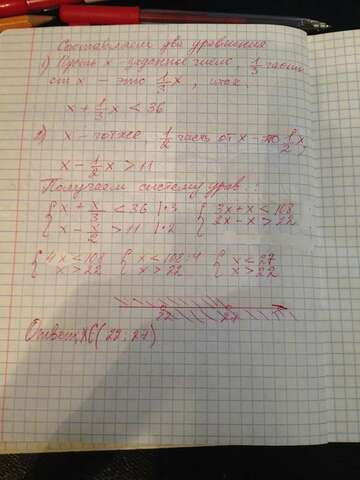 Составляем два уравнения
1) Пусть x заданное число, 1/3 часть
от x – это 1/3 x, итак:
x + 1/3 x < 36
2) x – тот же 1/2 часть от x – это 1/2 x,
x – 1/2 x > 11
Получаем систему урав.:
{ x + x/3 < 36 | ·3 { 3x + x < 108
x – x/2 > 11 | ·2 2x – x > 22
{ 4x < 108 { x < 108:4 { x < 27
x > 22 x > 22 x > 22
22 27
Ответ: x∈(22; 27)